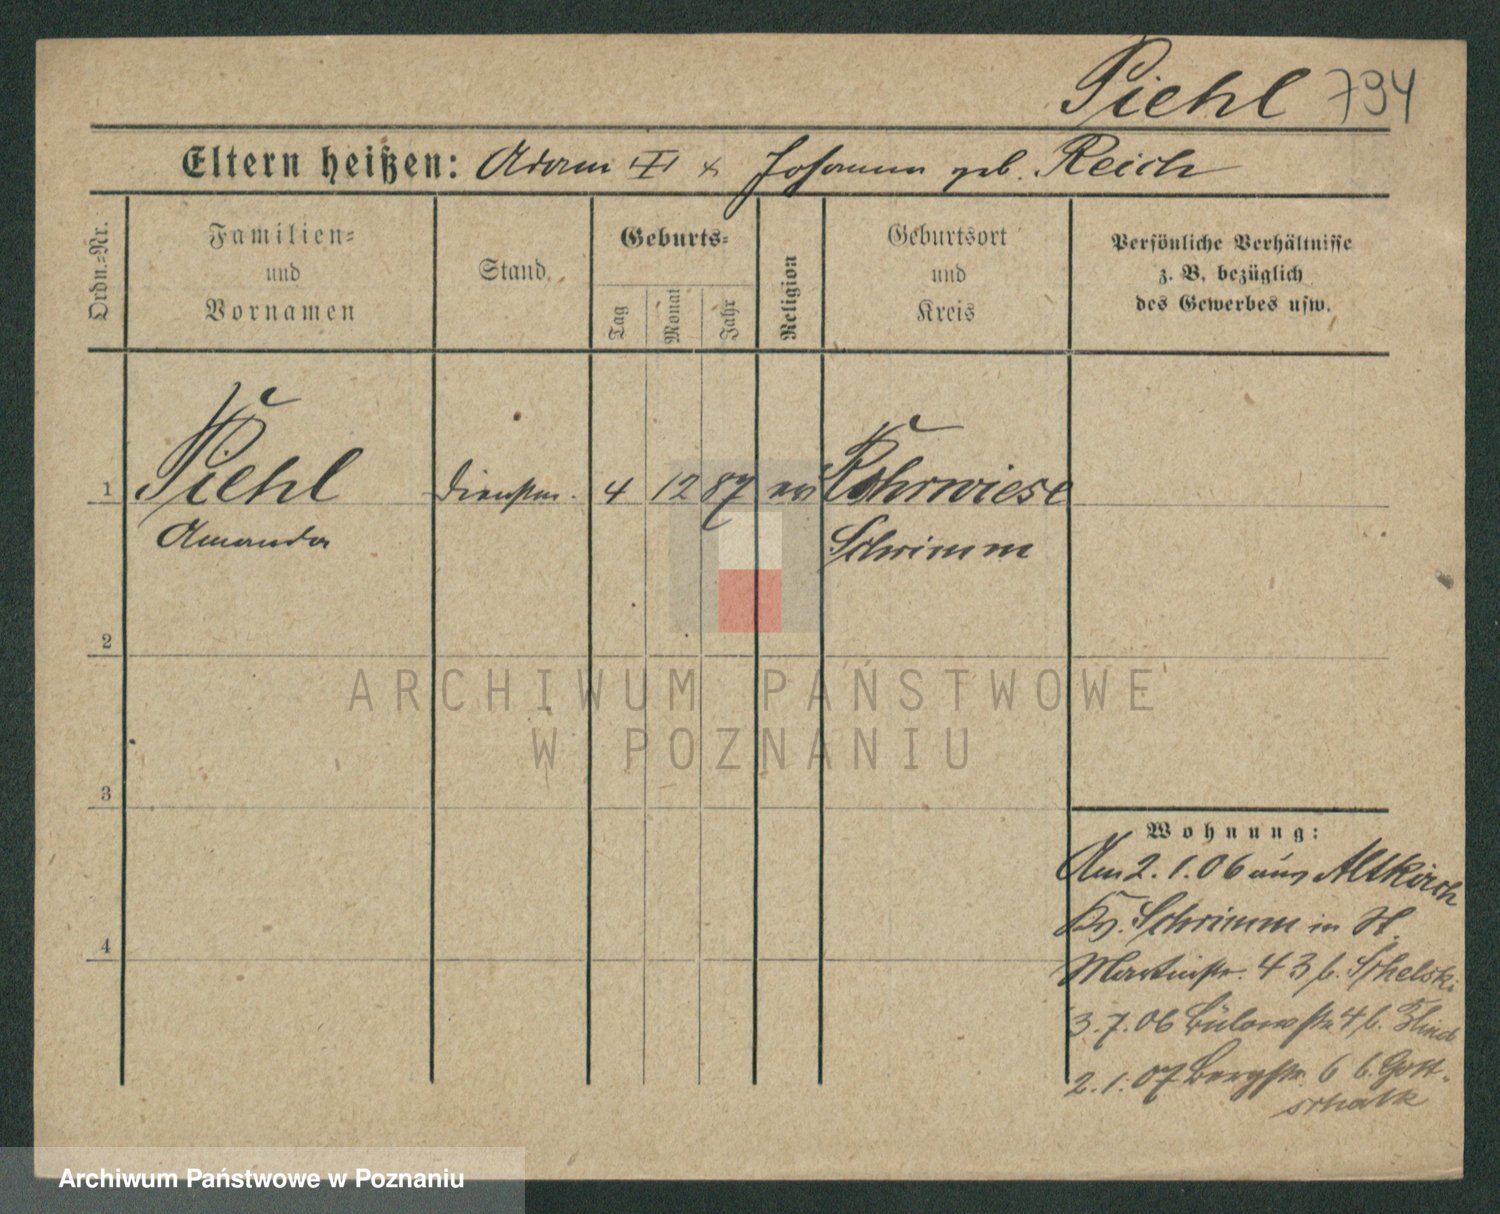 Piehl 794
Eltern heißen: Adam III x Johanna geb. Reich
Ordn.-Nr.
Familien-
und
Vornamen
Stand
Geburts-
Tag
Monat
Jahr
Religion
Geburtsort
und
Kreis
Persönliche Verhältnisse
z. B. bezüglich
des Gewerbes usw.
1 Piehl Dienstm. 4 12 87 ev Rohrwiese
Amanda Schrimm
2
3
4
Wohnung:
Am 2.1.06 aus Altkirch
Kr. Schrimm in St.
Martinstr. 43 b. Schelski
3.7.06 Bülowstr 4 b.
2.1.07 Bergstr. 6 b. Gott-
schalk
ARCHIWUM PAŃSTWOWE
W POZNANIU
Archiwum Państwowe w Poznaniu